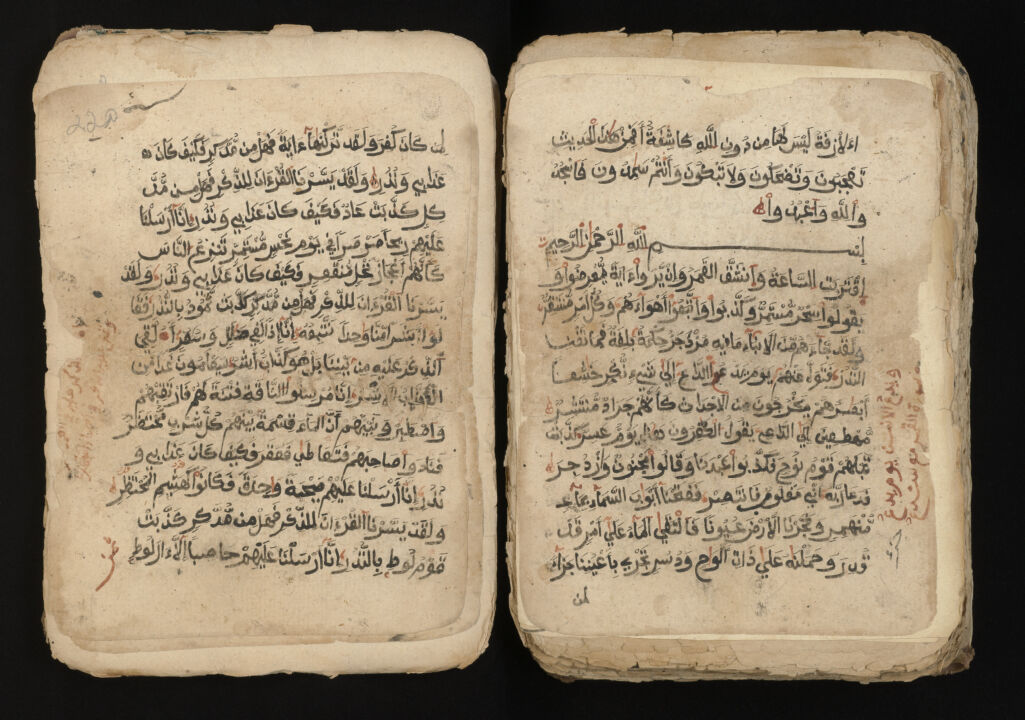 اءلازفة ليس لها من دون الله كاشفة أفمن هذا الحديث
تعجبون وتضحكون ولا تبكون وأنتم سمدون فاسجد
والله واعبدوا
بسم الله الرحمن الرحيم
اقتربت الساعة وانشق القمر وإن يروا ءاية يعرضوا و
يقولوا سحر مستمر وكذبوا واتبعوا أهواءهم وكل أمر مستقر
ولقد جاءهم من الانباء ما فيه مزدجر حكمة بلغة فما تغن
النذر فتول عنهم يوم يدع الداع إلى شيء نكر خشعا
أبصرهم يخرجون من الاجداث كأنهم جراد منتشر
مهطعين إلى الداع يقول الكفرون هذا يوم عسر كذبت
قبلهم قوم نوح فكذبوا عبدنا وقالوا مجنون وازدجر
فدعا ربه أني مغلوب فانتصر ففتحنا أبواب السماء بماء
منهمر وفجرنا الارض عيونا فالتقى الماء على أمر قد
قدر وحملنه على ذات ألوح ودسر تجري بأعيننا جزاء
لمن
220
لمن كان كفر ولقد تركنها ءاية فهل من مدكر فكيف كان
عذابي ونذر ولقد يسرنا القرءان للذكر فهل من مد
كر كذبت عاد فكيف كان عذابي ونذر إنا أرسلنا
عليهم ريحا صرصرا في يوم نحس مستمر تنزع الناس
كأنهم أعجاز نخل منقعر فكيف كان عذابي ونذر ولقد
يسرنا القرءان للذكر فهل من مدكر كذبت ثمود بالنذر فقا
لوا أبشرا منا وحدا نتبعه إنا إذا لفي ضلل وسعر أءلقي
الذكر عليه من بيننا بل هو كذاب أشر سيعلمون غدا من
الكذاب الاشر إنا مرسلوا الناقة فتنة لهم فارتقبهم
واصطبر ونبئهم أن الماء قسمة بينهم كل شرب محتضر
فنادوا صاحبهم فتعاطى فعقر فكيف كان عذابي و
نذر إنا أرسلنا عليهم صيحة وحدة فكانوا كهشيم المحتظر
ولقد يسرنا القرءان للذكر فهل من مدكر كذبت
قوم لوط بالنذر إنا أرسلنا عليهم حاصبا إلا ءال لوط